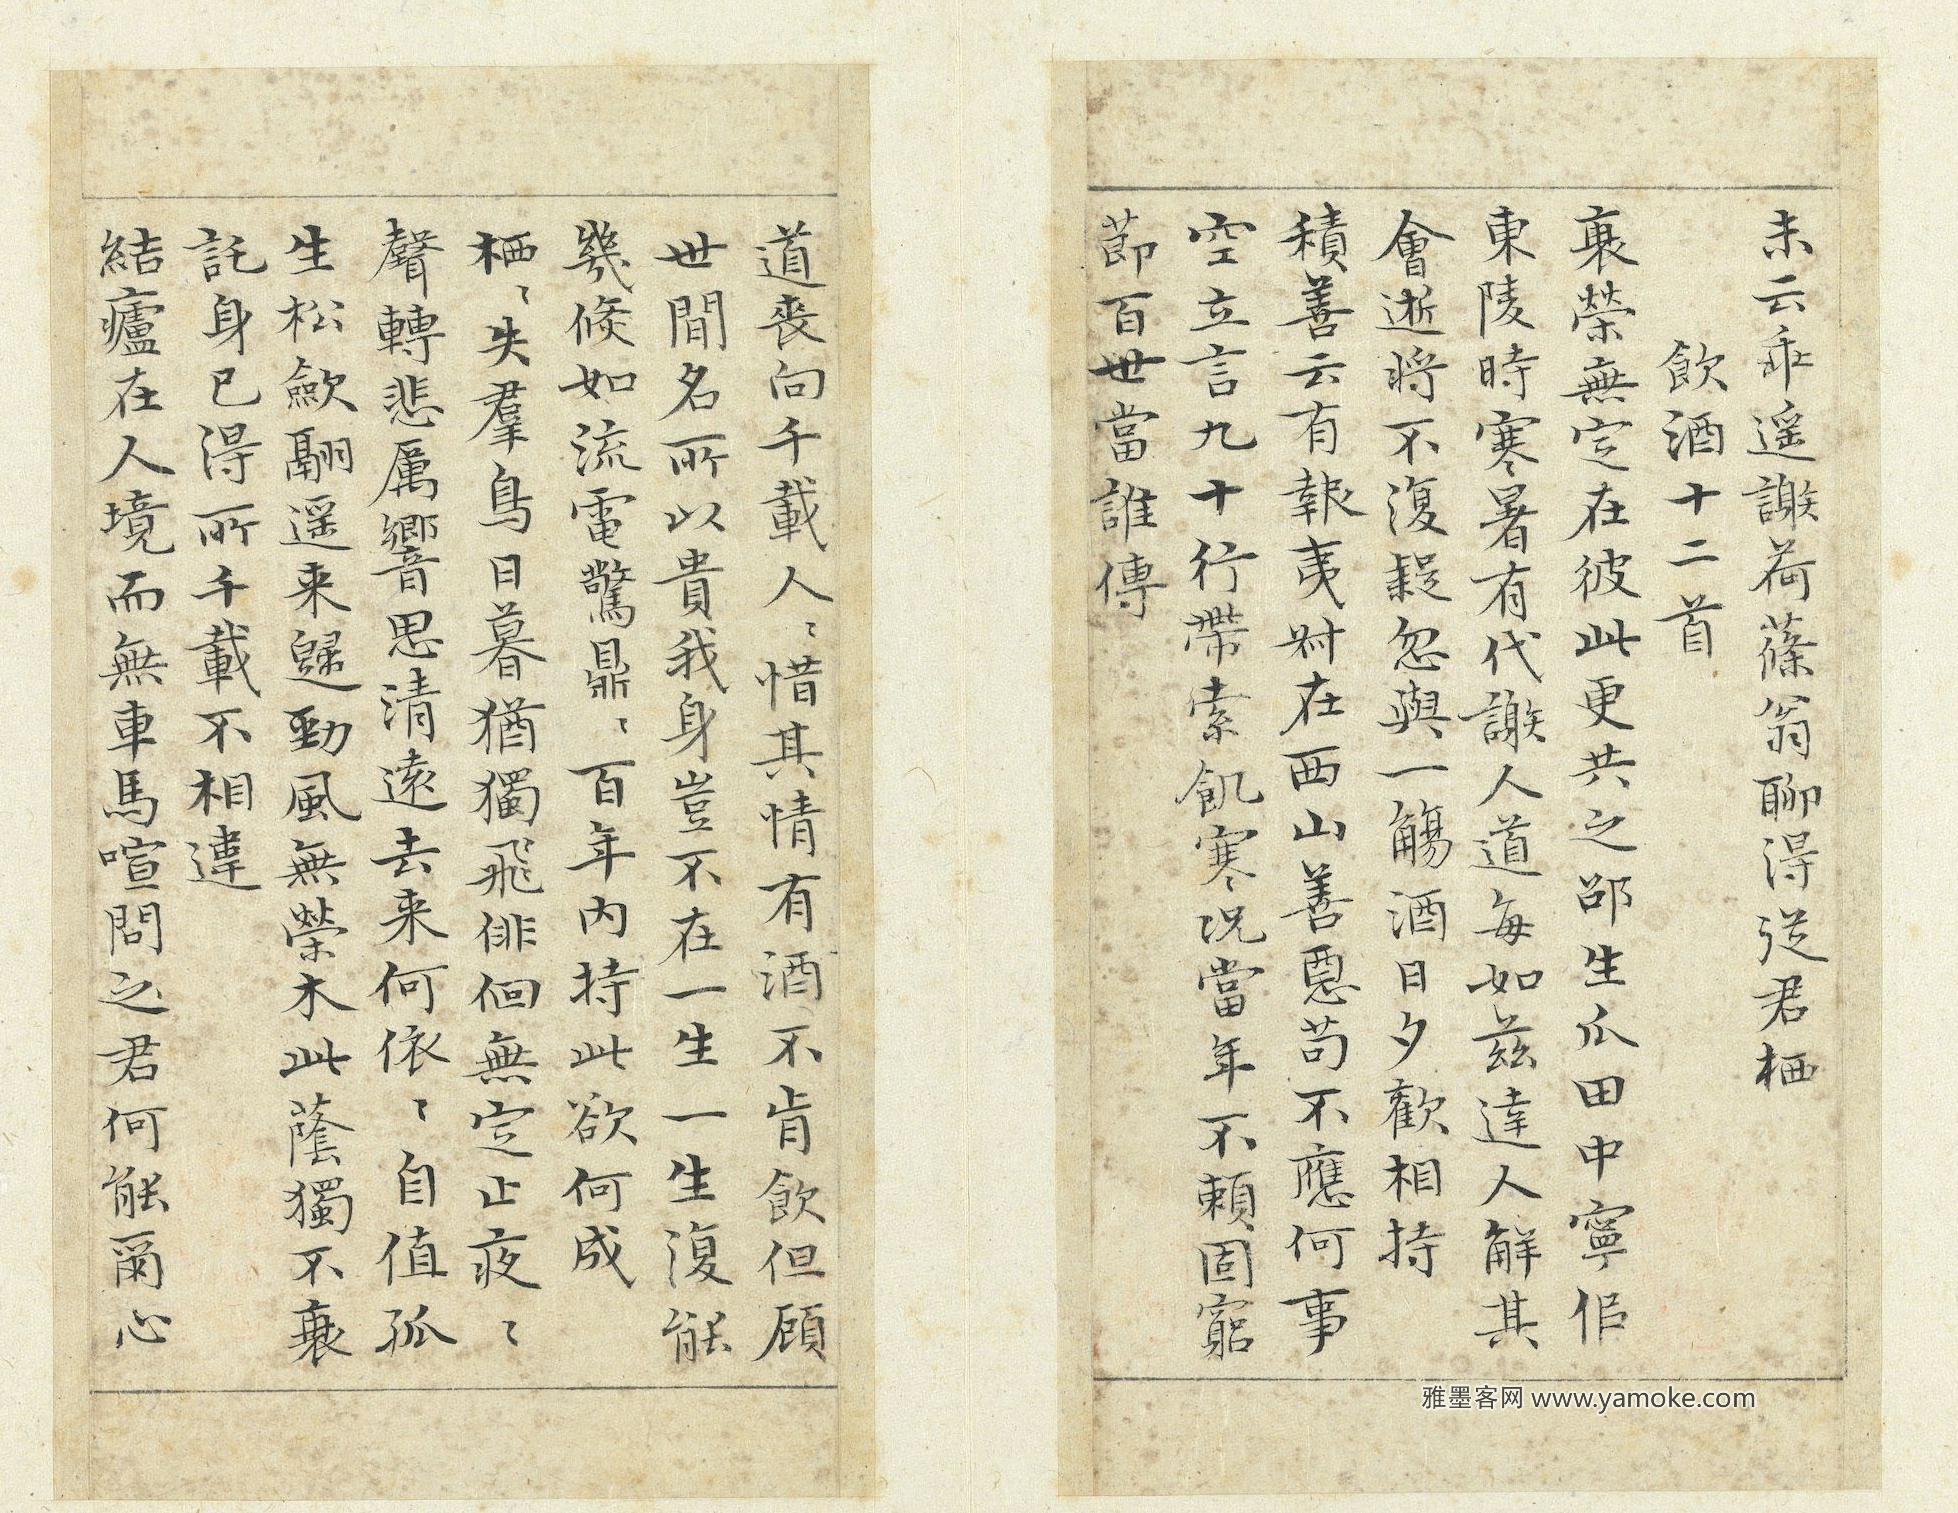 未云乖遥謝荷蓧翁聊得従君栖
飲酒十二首
衰榮無定在彼此更共之邵生瓜田中寧佀
東陵時寒暑有代謝人道每如兹達人解其
會逝將不復疑忽與一觴酒日夕歡相持
積善云有報夷叔在西山善惡苟不應何事
空立言九十行帶索飢寒況當年不賴固窮
莭百世當誰傳
道喪向千載人〻惜其情有酒不肯飲但顧
世間名所以貴我身豈不在一生一生復能
幾倏如流電驚鼎〻百年內持此欲何成
栖〻失羣鳥日暮猶獨飛徘徊無定止夜〻
聲轉悲厲響思清遠去来何依〻自值孤
生松斂翮遥来歸勁風無榮木此蔭獨不衰
託身已得所千載不相違
結廬在人境而無車馬喧問之君何能爾心
雅墨客网 www.yamoke.com